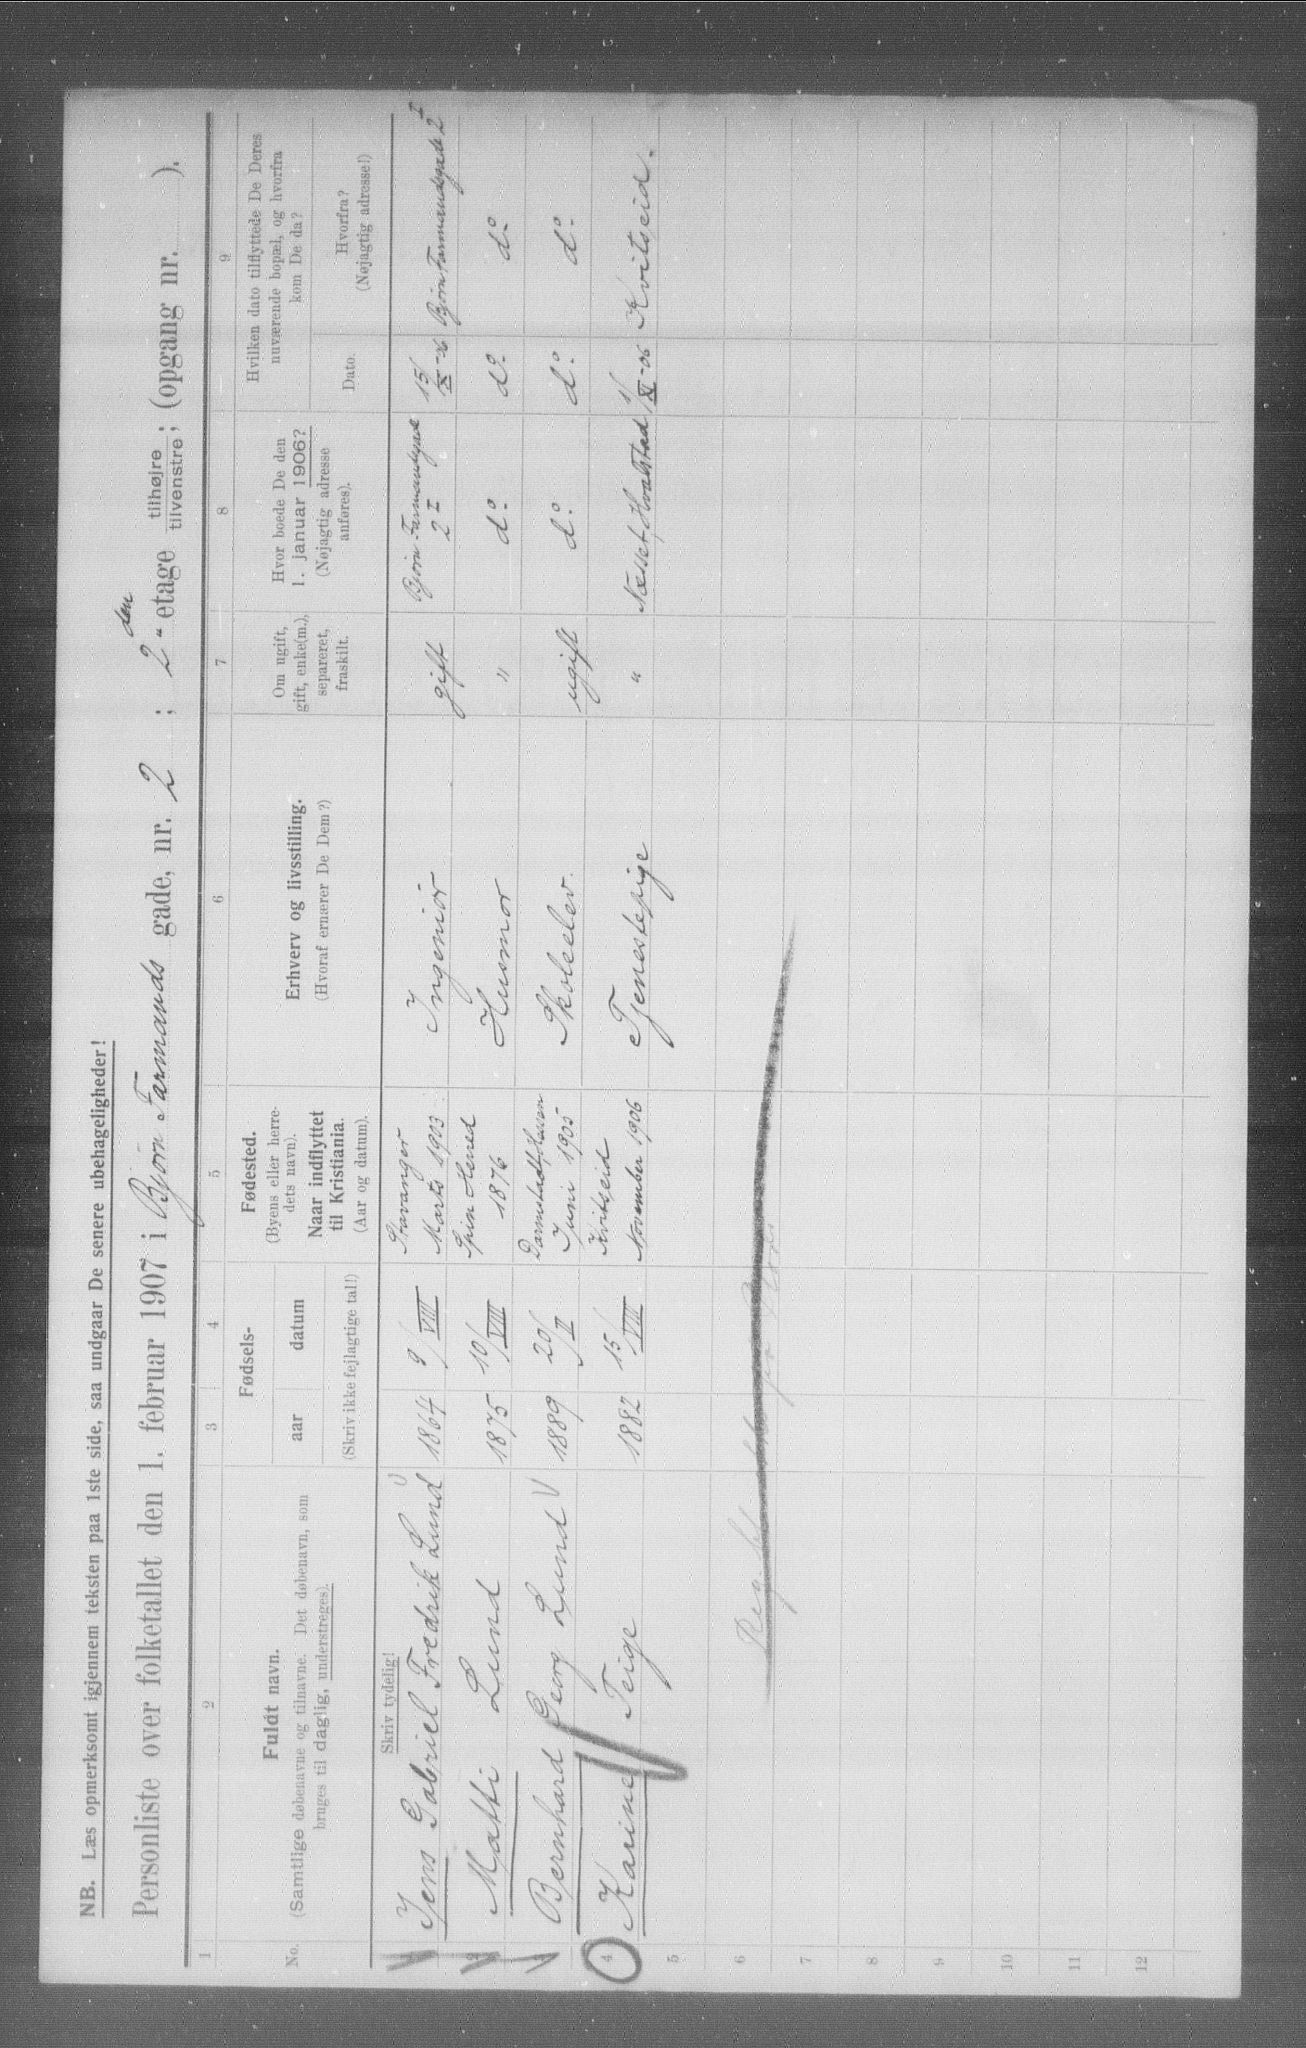 NB. Læs opmerksomt igjennem teksten paa 1ste side, saa undgaar De senere ubehageligheder!
Personliste over folketallet den 1. februar 1907 i Bjørn Farmands gade, nr. 2 ; 2den etage tilhøjre / tilvenstre ; (opgang nr. ).
1 2 3 4 5 6 7 8 9
No.
Fuldt navn.
(Samtlige døbenavne og tilnavne. Det døbenavn, som
bruges til daglig, understreges).
Fødsels-
aar datum
(Skriv ikke fejlagtige tal!)
Fødested.
(Byens eller herre-
dets navn).
Naar indflyttet
til Kristiania.
(Aar og datum).
Erhverv og livsstilling.
(Hvoraf ernærer De Dem?)
Om ugift,
gift, enke(m.),
separeret,
fraskilt.
Hvor boede De den
1. januar 1906?
(Nøjagtig adresse
anføres).
Hvilken dato tilflyttede De Deres
nuværende bopæl, og hvorfra
kom De da?
Dato.
Hvorfra?
(Nøjagtig adresse!)
Skriv tydelig!
Jens Gabriel Fredrik Lund 1864 9/VIII Stavanger Marts 1903 Ingeniør gift Bjørn Farmandsgade 2 I 15/IX-06 Bjørn Farmandsgade 2 I
2 Matti Lund 1875 10/VIII Herred 1876 Husmor " do. do. do.
Bernhard Georg Lund 1889 20/II Darmstadt Hessen Juni 1905 Skoleelev. ugift do. do. do.
4 Karine Teige 1882 15/VIII Kvitseid November 1906 Tjenestepige " Næsset, Hvalstad 1/XI-06 Kvitseid.
5
6
7
8
9
10
11
12